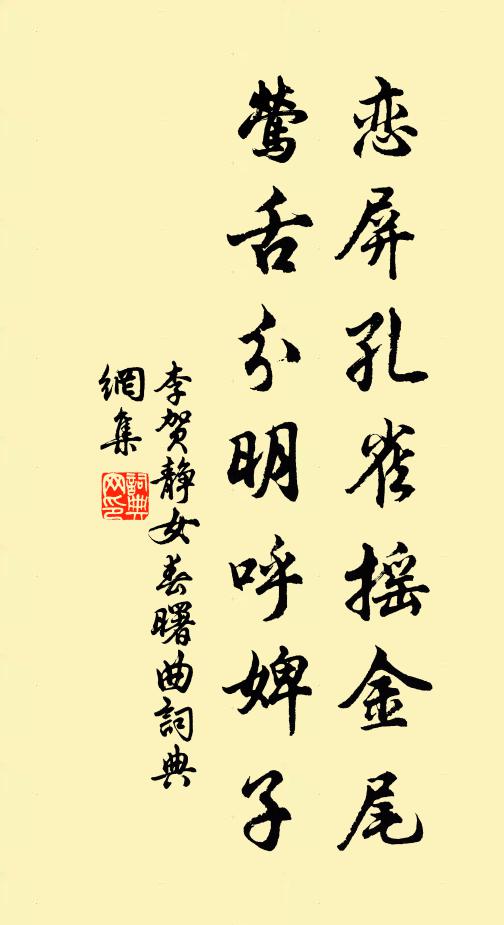 恋屏孔雀摇金尾
莺舌分明呼婢子
李贺静女春曙曲詞典
網集
詞典
网印